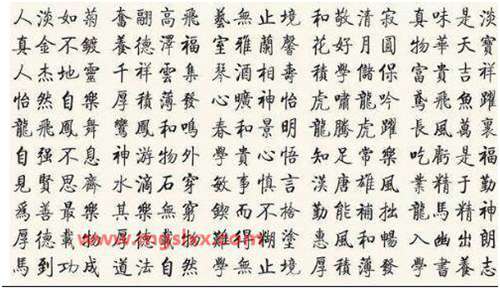 人淡如菊 奮翮高飛 藝無止境 和敬清寂 真味是淡
真金不鍍 養德澤福 室雅蘭馨 花好月圓 物華天寶
人杰地靈 千祥雲集 琴酒相壽 積學儲保 富貴吉祥
怡然自樂 厚積薄發 心曠神怡 虎嘯龍吟 鳶飛魚躍
龍飛鳳舞 鸞鳳和鳴 春和景明 龍騰虎躍 長風萬裏
自强不息 神游物外 學貴心悟 知足常樂 吃虧是福
見賢思齊 水滴石穿 敏事慎言 漢唐雄風 業精于勤
爲善最樂 其樂無窮 鍥而不捨 勤能補拙 龍馬精神
厚德載物 載物 難得糊塗 惠風和暢 入幽出朗
馬到功成 道法自然 學無止境 厚積薄發 學書養志
www.mgslxx.com